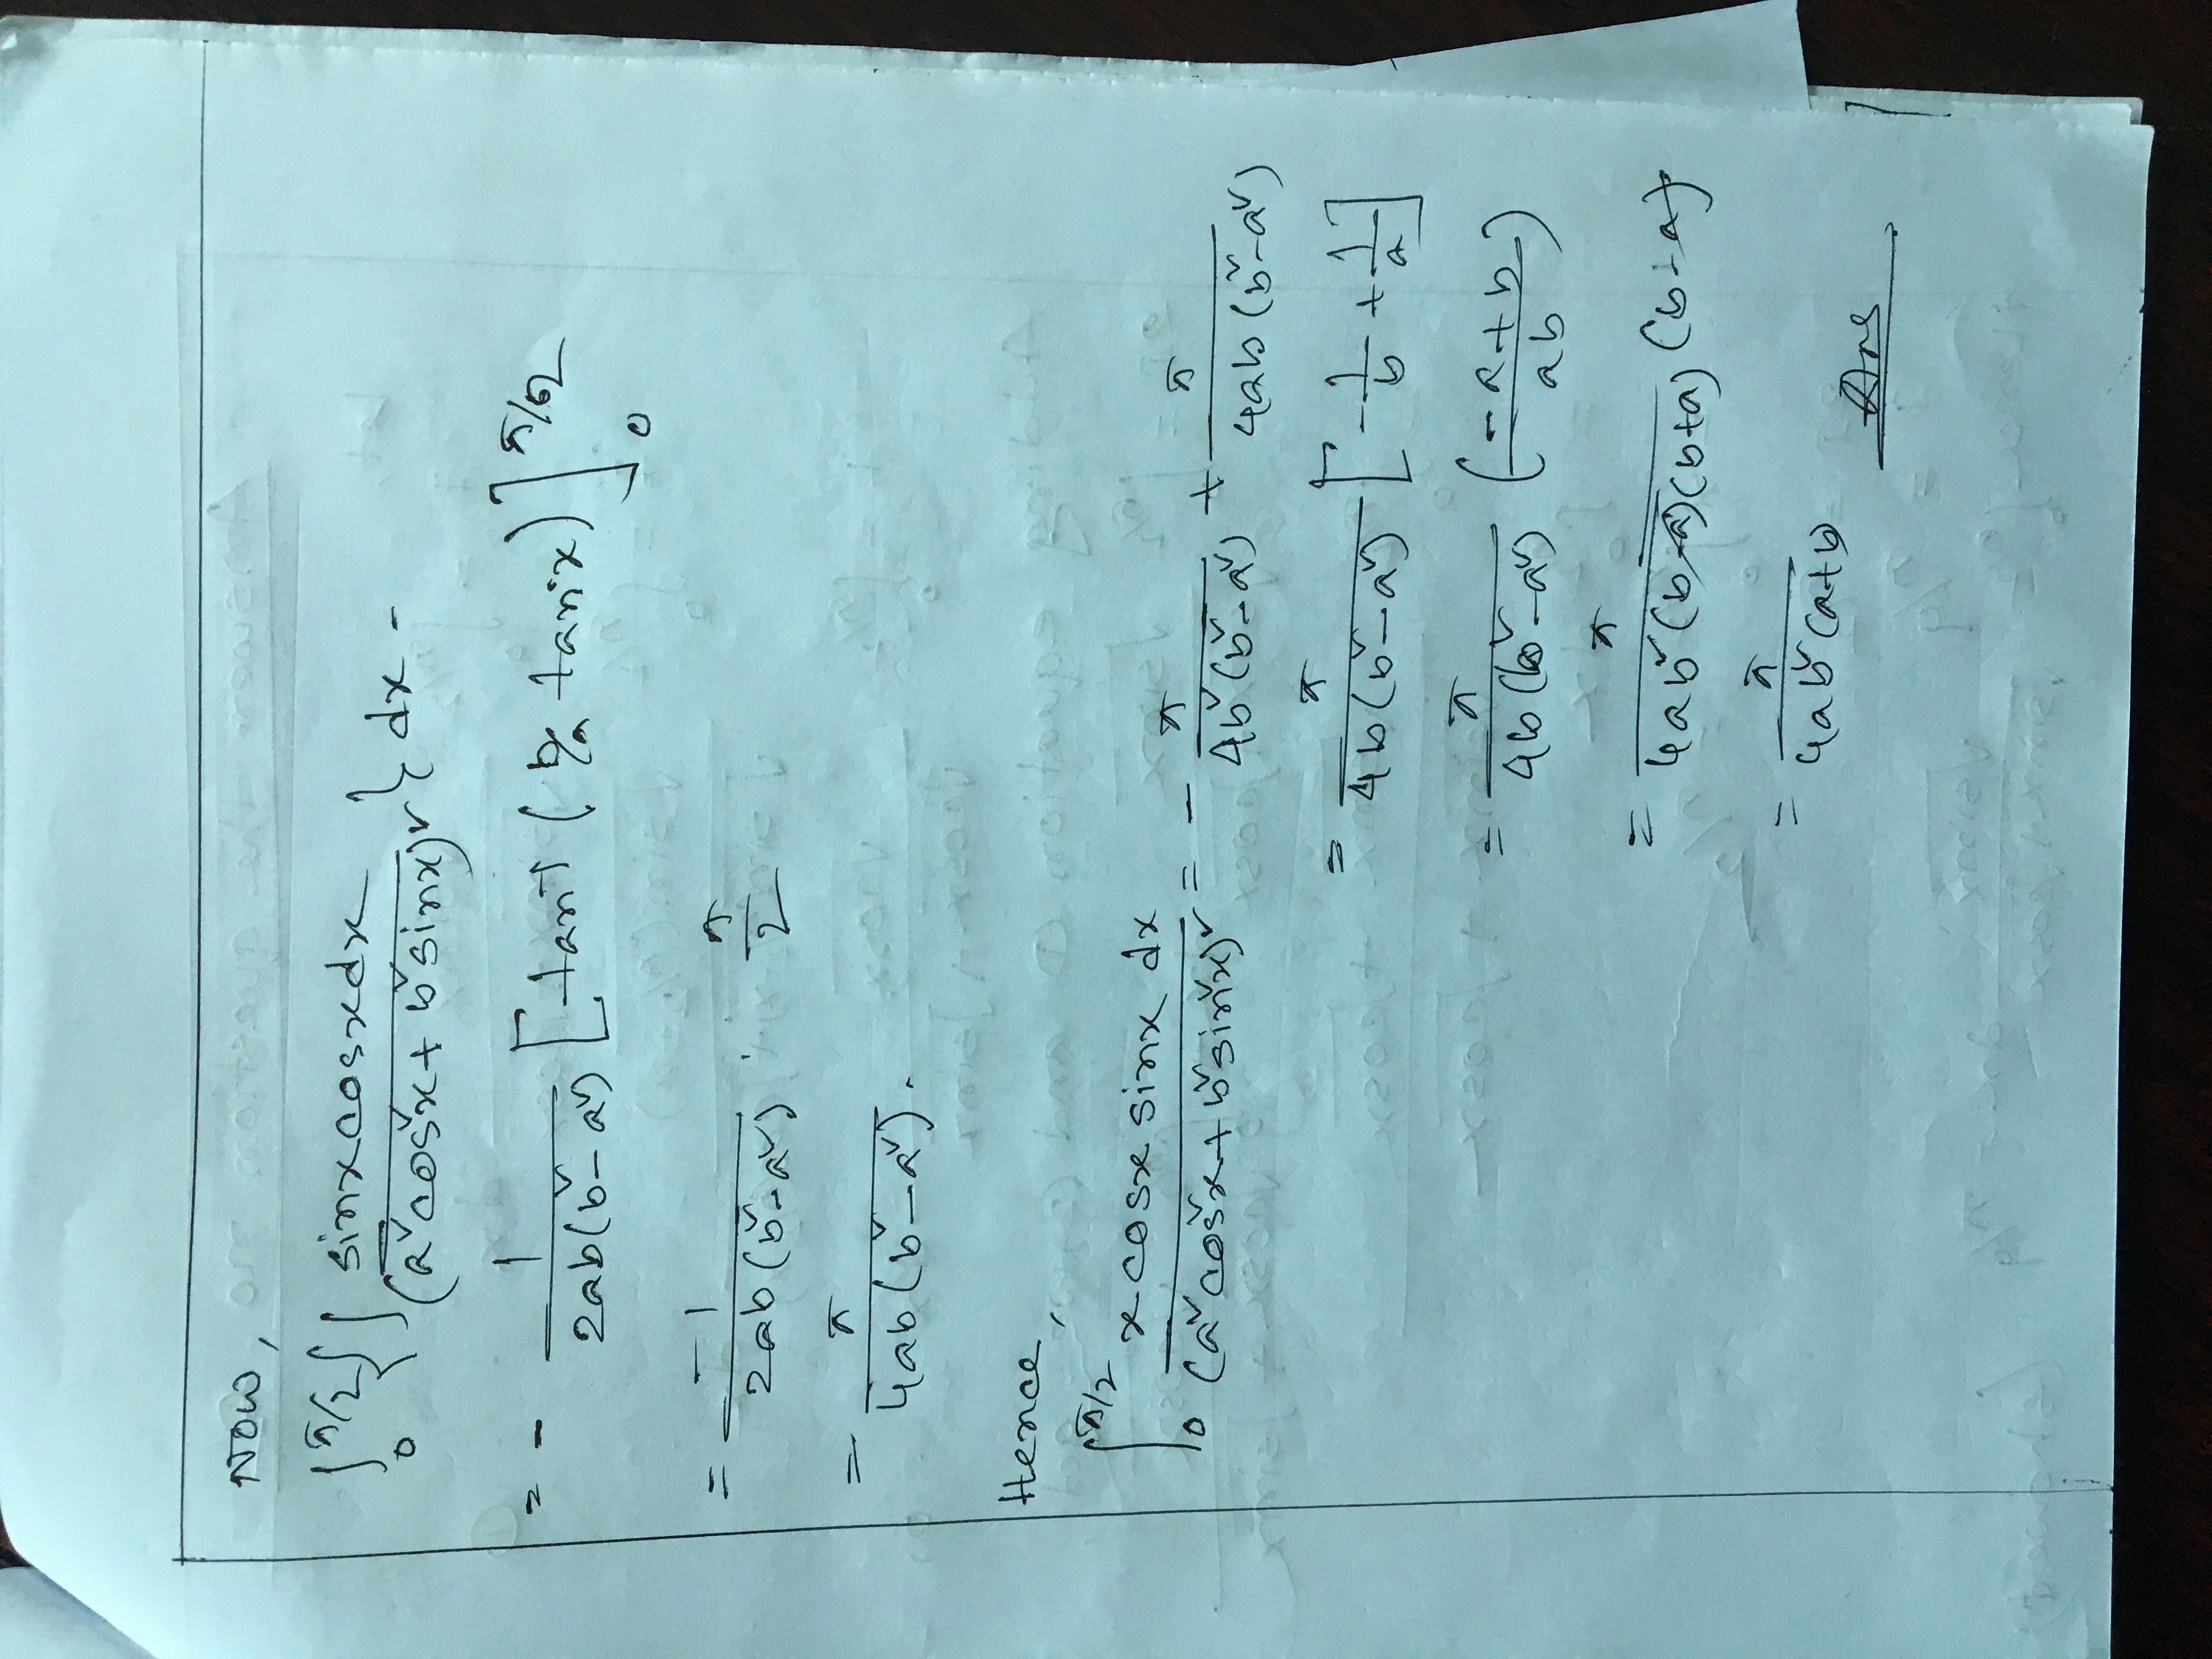 Now,
∫₀^{π/2} {∫ sinx cosx dx / (a²cos²x + b²sinx)²} dx -
= - 1/(2ab(b²-a²)) [tan⁻¹(b/a tan x)]₀^{π/2}
= -1/(2ab(b²-a²)) · π/2
= π/(4ab(b²-a²)).
Hence,
∫₀^{π/2} x cosx sinx dx / (a²cos²x + b²sin²x)² = - π/(4b²(b²-a²)) + π/(4ab(b²-a²))
= π/(4b(b²-a²)) [-1/b + 1/a]
= π/(4b(b²-a²)) ((-a+b)/ab)
= π/(4ab²(b-a)(b+a)) (b-a)
= π/(4ab²(a+b))
Ans